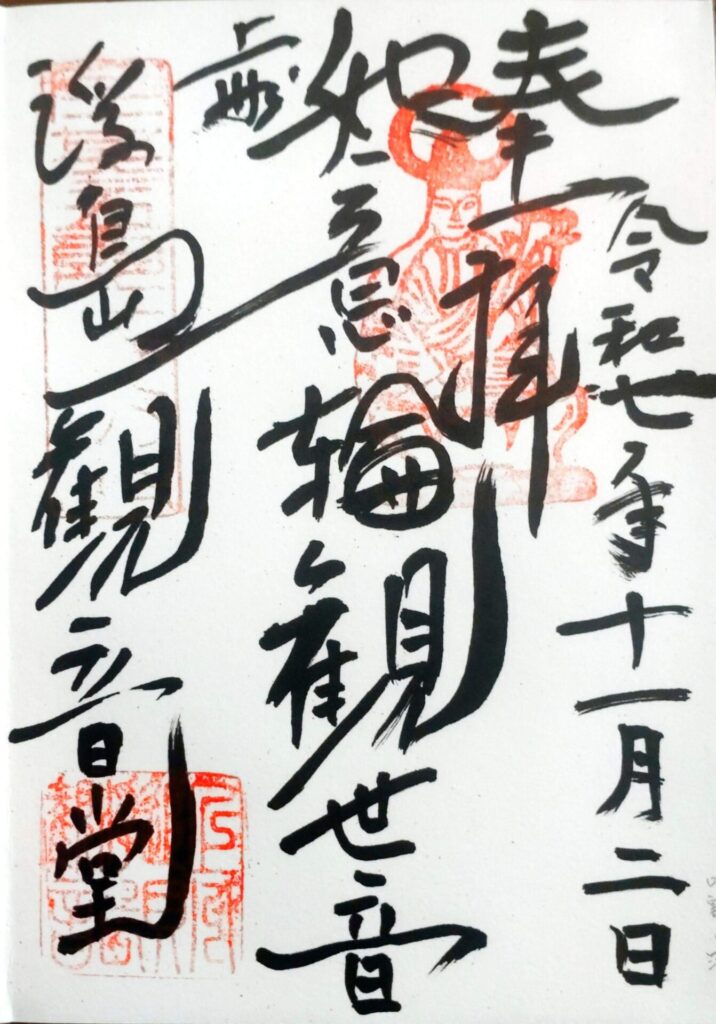 奉拝
令和七年十一月二日
如意輪観世音
浮島観音堂